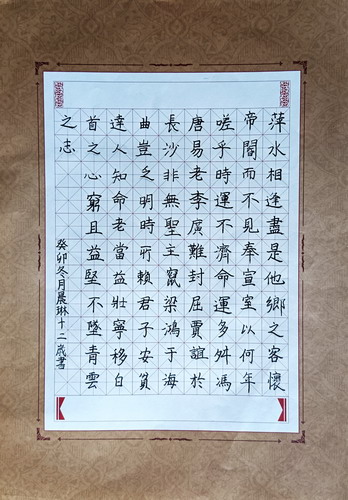 萍水相逢盡是他鄉之客懷
帝閽而不見奉宣室以何年
嗟乎時運不濟命運多舛馮
唐易老李廣難封屈賈誼於
長沙非無聖主竄梁鴻于海
曲豈乏明時所賴君子安貧
達人知命老當益壯寧移白
首之心窮且益堅不墜青雲
之志
癸卯冬月晨琳十二歲書